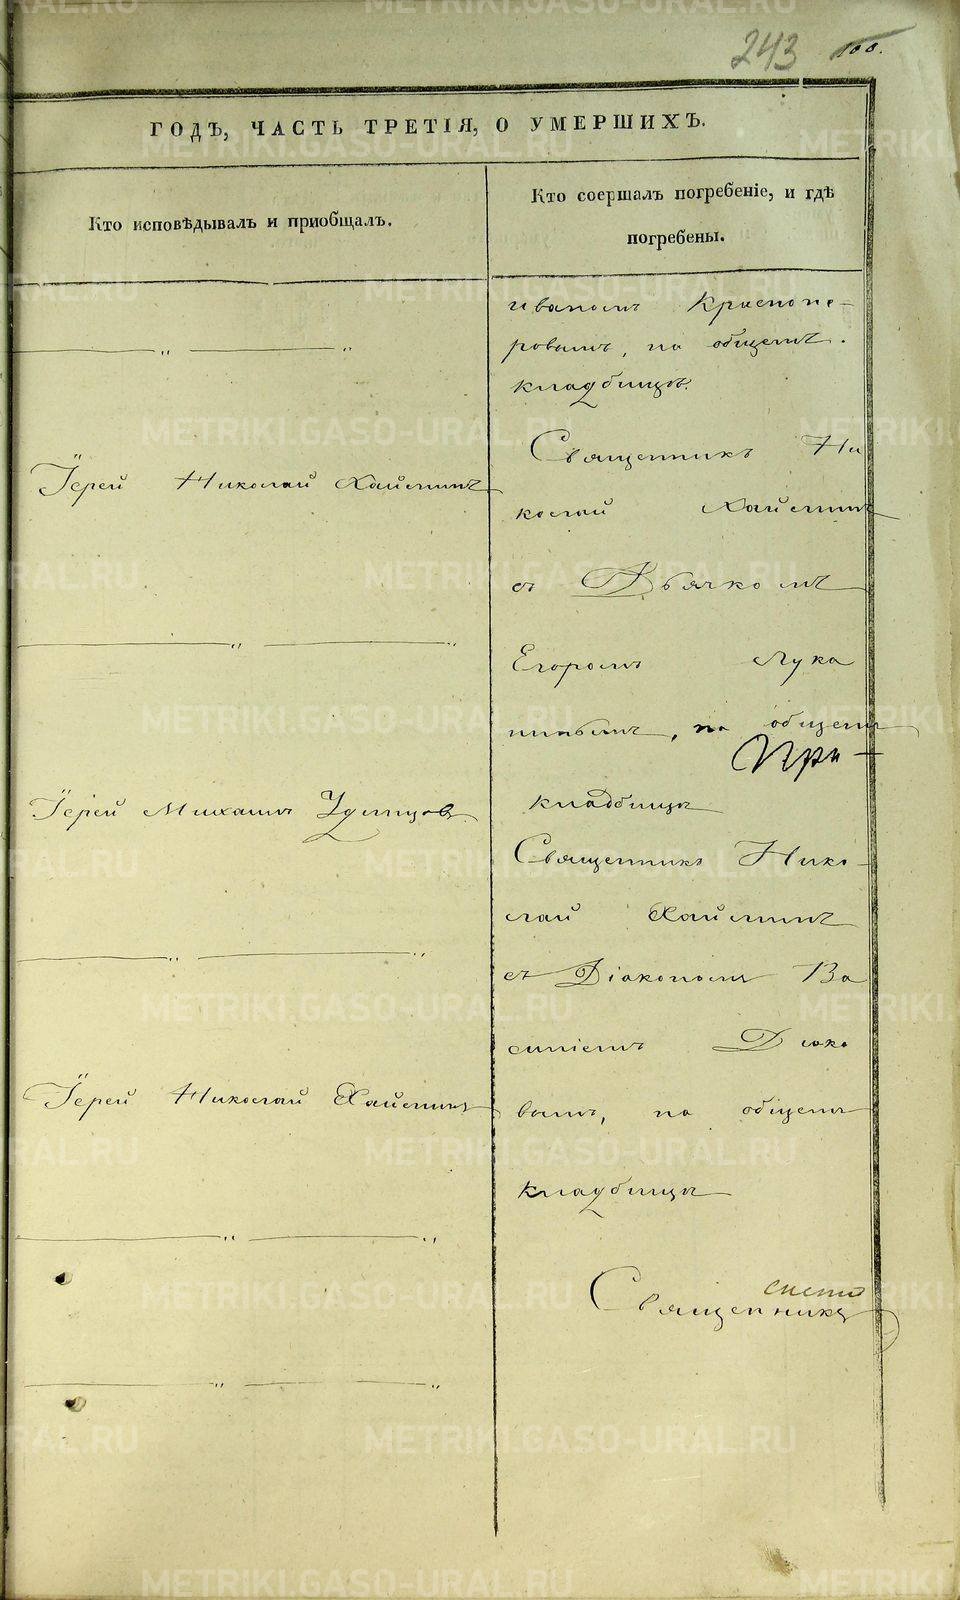 243 100.
ГОДЪ, ЧАСТЬ ТРЕТІЯ, О УМЕРШИХЪ.
Кто исповѣдывалъ и приобщалъ.
Кто соершалъ погребеніе, и гдѣ
погребены.
Иваномъ Краснопе-
ровымъ, на общемъ
кладбищѣ.
Іерей Николай Хаймин
Священникъ Ни
колай Хаймин
съ Дьячкомъ
Егоромъ Лука
нинымъ, на общемъ
При-
кладбищѣ
Іерей Михаилъ Удинцовъ
Священникъ Нико-
лай Хаймин
съ Діакономъ Ва
силіемъ
Іерей Николай Хаймин
вымъ, на общемъ
кладбищѣ
Священникъ
METRIKI.GASO-URAL.RU